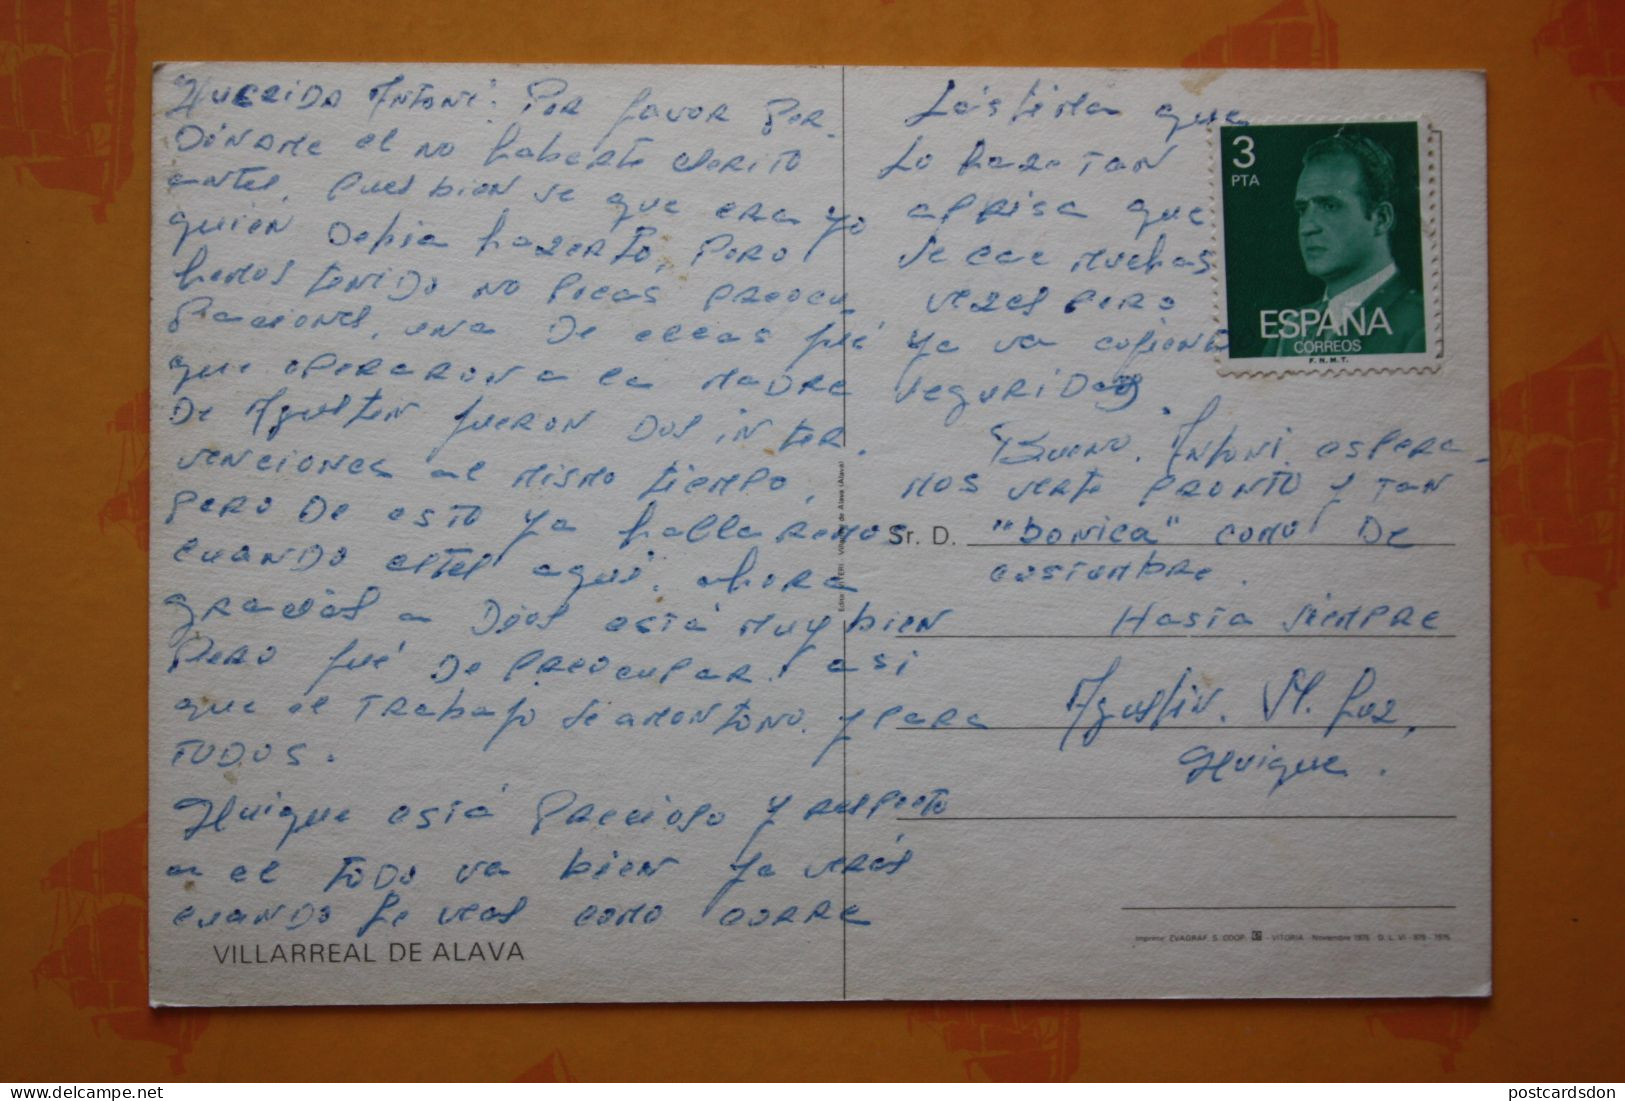 Querida Antoni: Por favor per-
dóname el no haberte escrito
antes, pues bien se que era yo
quién debía hazerlo, pero
hemos tenido no pocas preocu-
paciones, una de ellas fué
que operaron a la madre
de Agustín fueron dos inter-
venciones al mismo tiempo,
pero de esto ya hablaremos
cuando estes aquí, ahora
gracias a Dios está muy bien
Pero fué de preocupar. asi
que el trabajo se amontono. y para
todos.
Quique está precioso y respecto
a el todo va bien ya verás
cuando le veas como corre
Lástima que
lo haze tan
aprisa que
se cae muchas
vezes pero
ya va cojiendo
seguridad.
Bueno, Antoni, espera-
mos verte pronto y tan
"bonica" como de
costumbre.
Hasta siempre
Agustín. M. Luz,
Quique.
3
PTA
ESPAÑA
CORREOS
F.N.M.T.
Sr. D.
VILLARREAL DE ALAVA
Villarreal de Alava (Alava)
Imprime: EVAGRAF, S. COOP. - VITORIA - Noviembre 1975 D. L. VI - 879 - 1975
postcardsdon